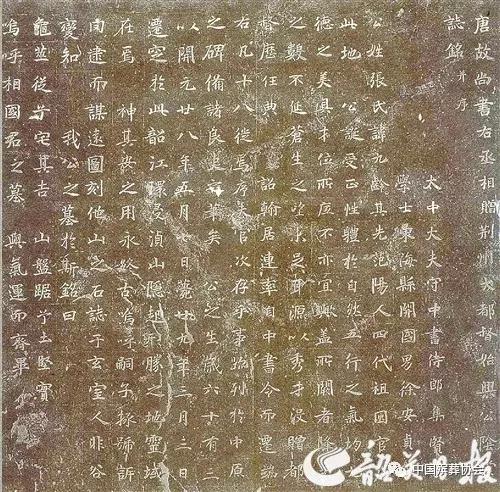 唐故尚書右丞相贈荊州大都督始興公陰
誌銘并序
太中大夫守中書侍郎集賢
學士東海縣開國男徐安貞
公姓張氏諱九齡其先范陽人四代祖因官
此地 公誕受正性體於自然五行之氣均
德之美具才位所底不亦宜與蓋所闕者降
之數不延蒼生之望未足深源以秀才沒贈都
督歷任典 誥翰居連率自中書令而遷端
右凡十八徙焉序本官次存乎事跡列於中原
之碑備諸良史之筆矣 公之生歲六十有三
以開元廿八年五月七日薨廿九年三月三日
遷窆於此韶江環浸湞山隱起形勝之地靈域
在焉 神其安之用永終古嗚呼嗣子拯號訴
罔逮而謀遠圖刻他山之石誌于玄室人非谷
變知 我公之墓於斯銘曰
龜筮從兮宅其吉 山盤踞兮土堅實
嗚呼相國君之墓 與氣運而齊畢
韶关日报
中国殡葬协会